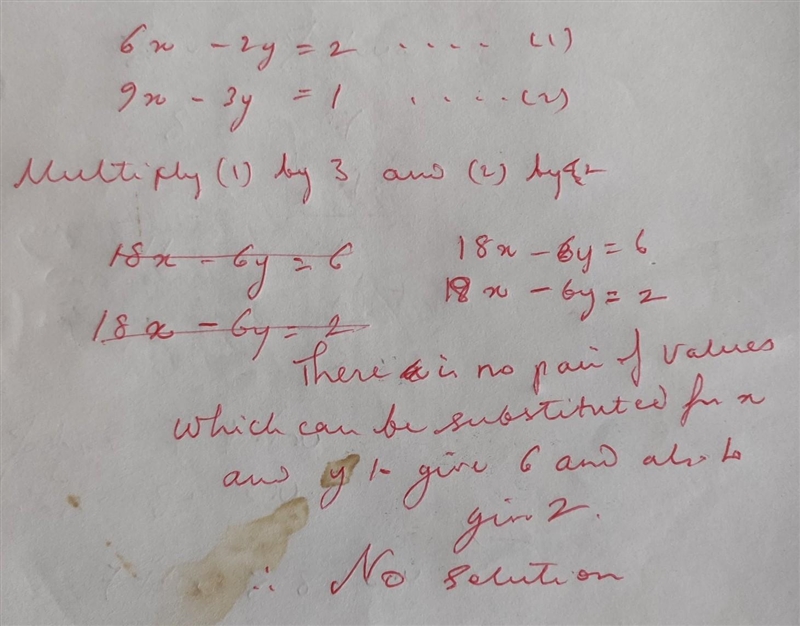 6x - 2y = 2 .... (1)
9x - 3y = 1 .... (2)
Multiply (1) by 3 and (2) by 2
18x - 6y = 6
18x - 6y = 2
18x - 6y = 6
18x - 6y = 2
There is no pair of values
which can be substituted for x
and y to give 6 and also to
give 2.
∴ No solution